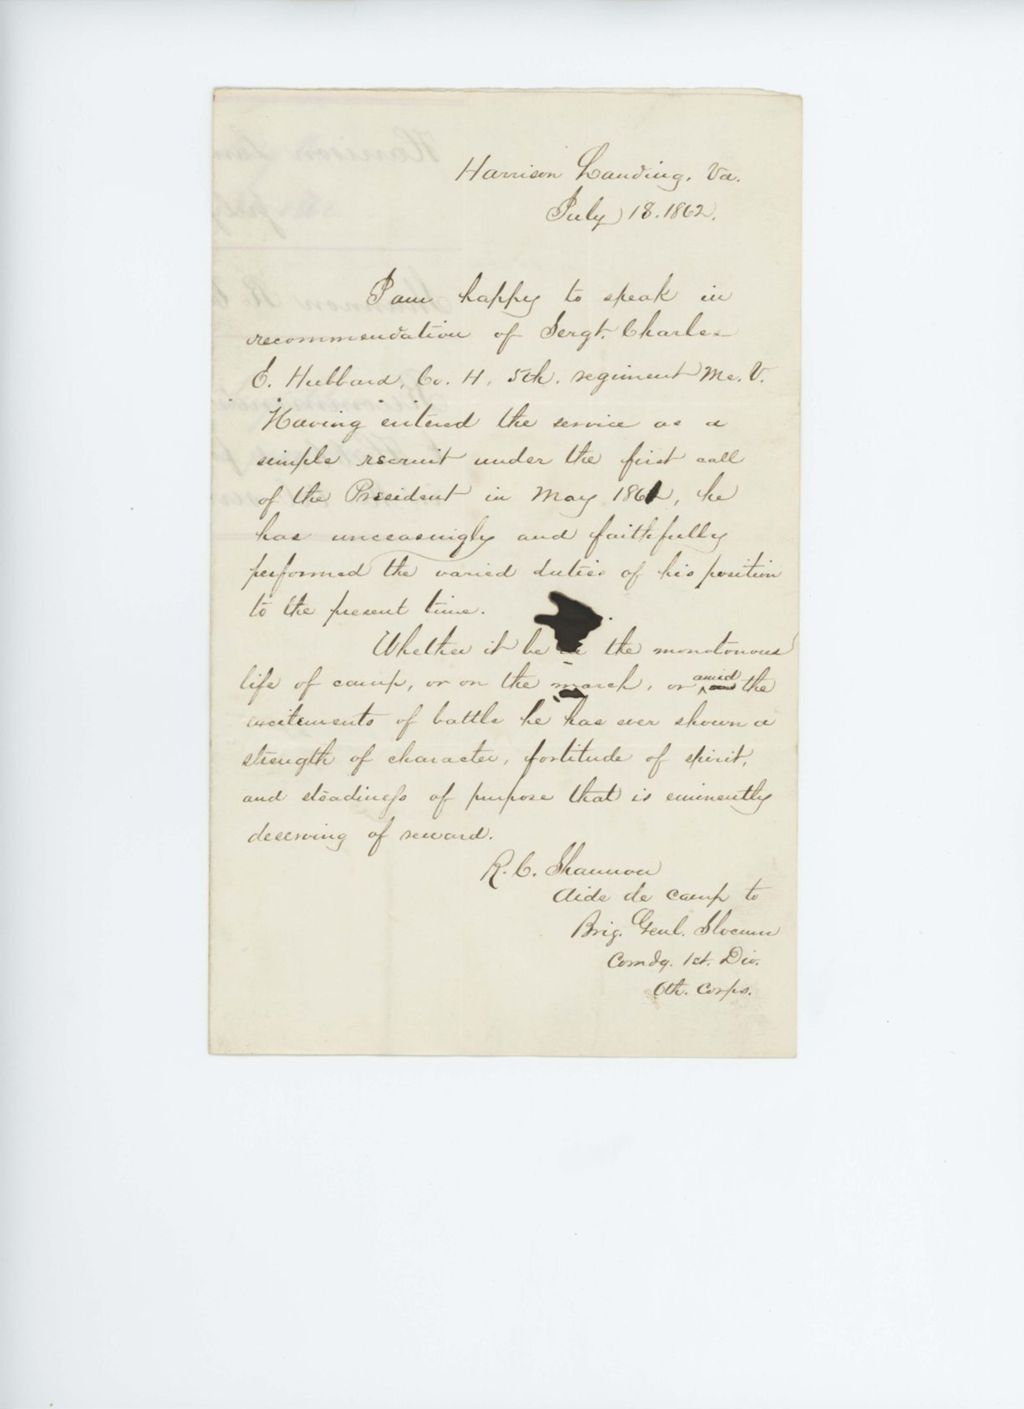 Harrison Landing, Va.
July 18. 1862.
I am happy to speak in
recommendation of Sergt. Charles
E. Hubbard, Co. H, 5th. regiment Me. V.
Having entered the service as a
simple recruit under the first call
of the President in May 1861, he
has unceasingly and faithfully
performed the varied duties of his position
to the present time.
Whether it be in the monotonous
life of camp, or on the march, or amid the
excitements of battle he has ever shown a
strength of character, fortitude of spirit,
and steadiness of purpose that is eminently
deserving of reward.
R. C. Shannon
Aide de camp to
Brig. Genl. Slocum
Comdg. 1st. Div.
6th. Corps.